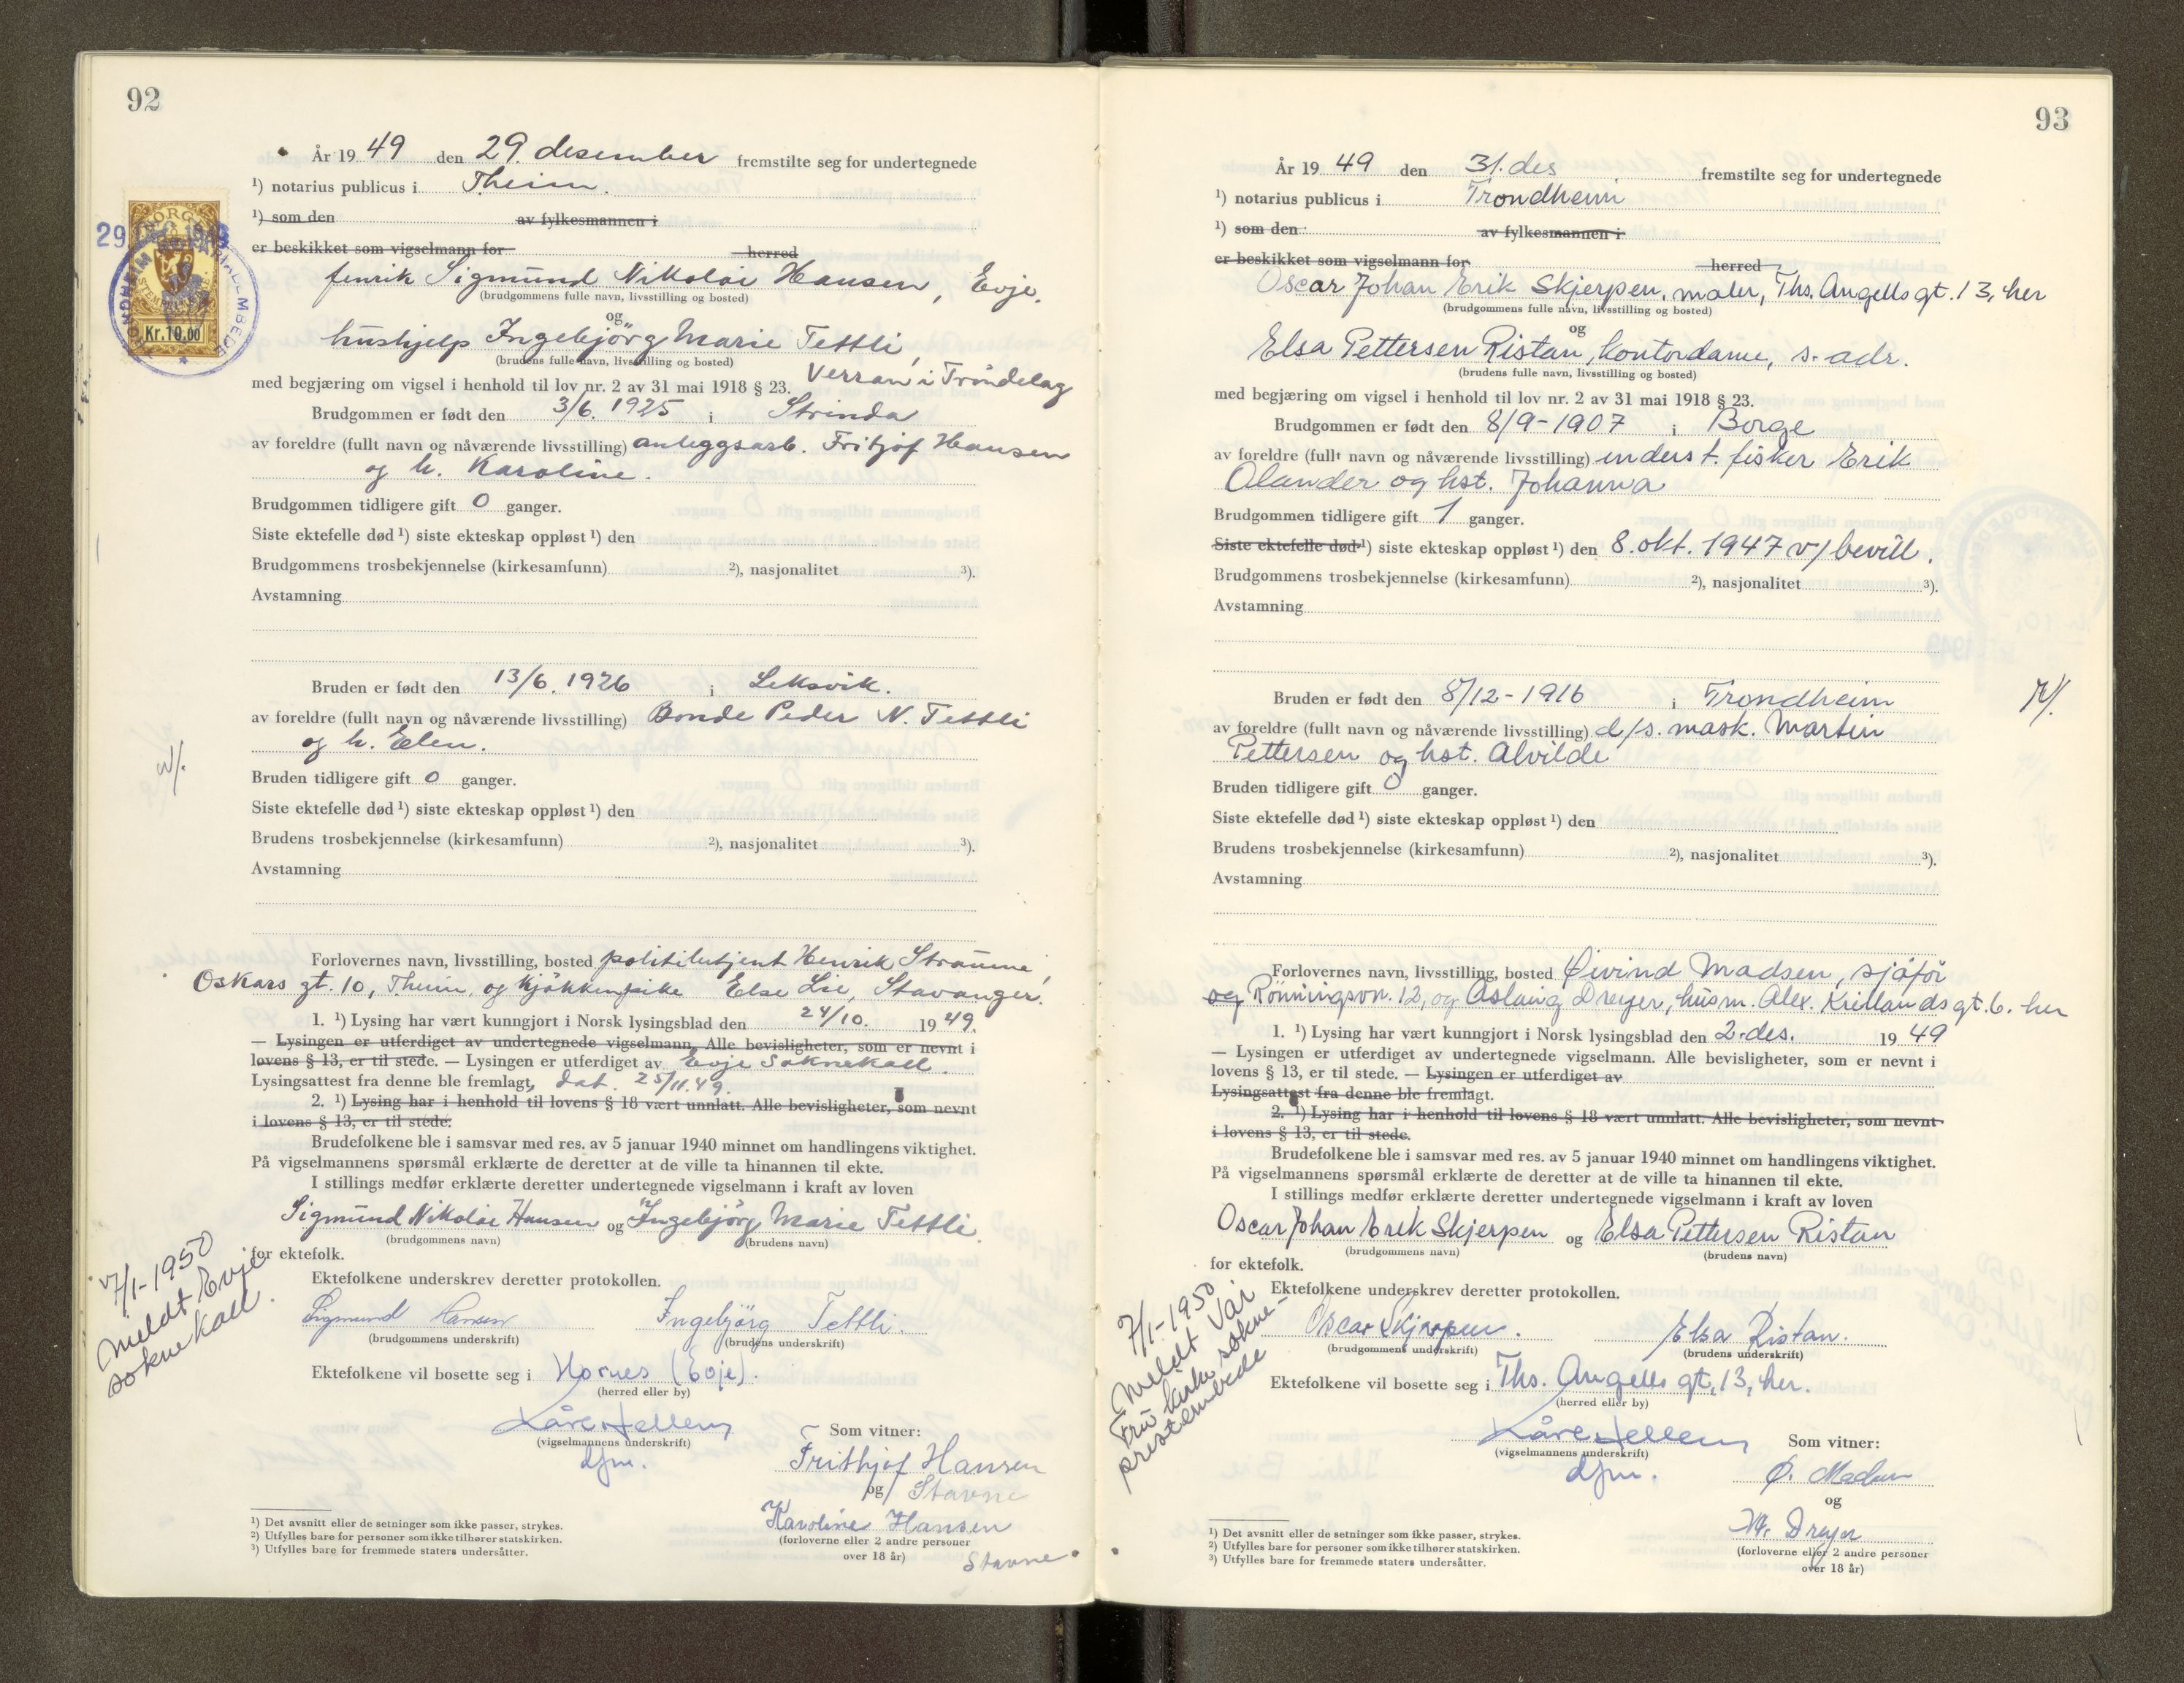 92
År 19 49 den 29. desember fremstilte seg for undertegnede
¹) notarius publicus i Theim.
¹) som den av fylkesmannen i
er beskikket som vigselmann for herred
fenrik Sigmund Nikolai Hansen, Evje.
(brudgommens fulle navn, livsstilling og bosted)
og
hushjelp Ingebjörg Marie Tettli,
(brudens fulle navn, livsstilling og bosted)
Verran i Tröndelag
med begjæring om vigsel i henhold til lov nr. 2 av 31 mai 1918 § 23.
Brudgommen er født den 3/6. 1925 i Strinda
av foreldre (fullt navn og nåværende livsstilling) anleggsarb. Fritjof Hansen
og h. Karoline.
Brudgommen tidligere gift 0 ganger.
Siste ektefelle død ¹) siste ekteskap oppløst ¹) den
Brudgommens trosbekjennelse (kirkesamfunn) ²), nasjonalitet ³).
Avstamning
Bruden er født den 13/6. 1926 i Leksvik.
av foreldre (fullt navn og nåværende livsstilling) Bonde Peder N. Tettli
og h. Elen.
Bruden tidligere gift 0 ganger.
Siste ektefelle død ¹) siste ekteskap oppløst ¹) den
Brudens trosbekjennelse (kirkesamfunn) ²), nasjonalitet ³).
Avstamning
Forlovernes navn, livsstilling, bosted politibetjent Henrik Straume,
Oskars gt. 10, Theim, og kjökkenpike Else Lie, Stavanger.
1. ¹) Lysing har vært kunngjort i Norsk lysingsblad den 24/10. 19 49.
— Lysingen er utferdiget av undertegnede vigselmann. Alle bevisligheter, som er nevnt i
lovens § 13, er til stede. — Lysingen er utferdiget av Evje Soknekall.
Lysingsattest fra denne ble fremlagt, dat. 25/11.49.
2. ¹) Lysing har i henhold til lovens § 18 vært unnlatt. Alle bevisligheter, som nevnt
i lovens § 13, er til stede.
Brudefolkene ble i samsvar med res. av 5 januar 1940 minnet om handlingens viktighet.
På vigselmannens spørsmål erklærte de deretter at de ville ta hinannen til ekte.
I stillings medfør erklærte deretter undertegnede vigselmann i kraft av loven
Sigmund Nikolai Hansen og Ingebjörg Marie Tettli
(brudgommens navn) (brudens navn)
for ektefolk.
7/1-1950
Meldt Evje
soknekall.
Ektefolkene underskrev deretter protokollen.
Sigmund Hansen Ingebjörg Tettli.
(brudgommens underskrift) (brudens underskrift)
Ektefolkene vil bosette seg i Hornes (Evje).
(herred eller by)
Kåre Hellem
(vigselmannens underskrift)
dfm.
Som vitner:
Frithjof Hansen
og Stavne
Karoline Hansen
(forloverne eller 2 andre personer
over 18 år)
Stavne
¹) Det avsnitt eller de setninger som ikke passer, strykes.
²) Utfylles bare for personer som ikke tilhører statskirken.
³) Utfylles bare for fremmede staters undersåtter.
Kr.10.00
93
År 19 49 den 31. des fremstilte seg for undertegnede
¹) notarius publicus i Trondheim
¹) som den av fylkesmannen i
er beskikket som vigselmann for herred
Oscar Johan Erik Skjerpen, maler, Ths. Angells gt. 13, her
(brudgommens fulle navn, livsstilling og bosted)
og
Elsa Pettersen Ristan, kontordame, s. adr.
(brudens fulle navn, livsstilling og bosted)
med begjæring om vigsel i henhold til lov nr. 2 av 31 mai 1918 § 23.
Brudgommen er født den 8/9-1907 i Borge
av foreldre (fullt navn og nåværende livsstilling) inderst. fisker Erik
Olander og hst. Johanna
Brudgommen tidligere gift 1 ganger.
Siste ektefelle død ¹) siste ekteskap oppløst ¹) den 8. okt. 1947 v/ bevill.
Brudgommens trosbekjennelse (kirkesamfunn) ²), nasjonalitet ³).
Avstamning
Bruden er født den 8/12-1916 i Trondheim
av foreldre (fullt navn og nåværende livsstilling) d/s. mask. Martin
Pettersen og hst. Alvilde
Bruden tidligere gift 0 ganger.
Siste ektefelle død ¹) siste ekteskap oppløst ¹) den
Brudens trosbekjennelse (kirkesamfunn) ²), nasjonalitet ³).
Avstamning
Forlovernes navn, livsstilling, bosted Öivind Madsen, sjåför
og Rönningsvn. 12, og Aslaug Dreyer, husm. Alex. Kiellands gt. 6. her
1. ¹) Lysing har vært kunngjort i Norsk lysingsblad den 2. des. 19 49
— Lysingen er utferdiget av undertegnede vigselmann. Alle bevisligheter, som er nevnt i
lovens § 13, er til stede. — Lysingen er utferdiget av
Lysingsattest fra denne ble fremlagt.
2. ¹) Lysing har i henhold til lovens § 18 vært unnlatt. Alle bevisligheter, som nevnt
i lovens § 13, er til stede.
Brudefolkene ble i samsvar med res. av 5 januar 1940 minnet om handlingens viktighet.
På vigselmannens spørsmål erklærte de deretter at de ville ta hinannen til ekte.
I stillings medfør erklærte deretter undertegnede vigselmann i kraft av loven
Oscar Johan Erik Skjerpen og Elsa Pettersen Ristan
(brudgommens navn) (brudens navn)
for ektefolk.
7/1-1950
Meldt Vår
Frue kirke sokne-
prestembede
Ektefolkene underskrev deretter protokollen.
Oscar Skjerpen. Elsa Ristan.
(brudgommens underskrift) (brudens underskrift)
Ektefolkene vil bosette seg i Ths. Angells gt, 13, her.
(herred eller by)
Kåre Hellem
(vigselmannens underskrift)
dfm.
Som vitner:
Ö. Madsen
og
Dreyer
(forloverne eller 2 andre personer
over 18 år)
¹) Det avsnitt eller de setninger som ikke passer, strykes.
²) Utfylles bare for personer som ikke tilhører statskirken.
³) Utfylles bare for fremmede staters undersåtter.